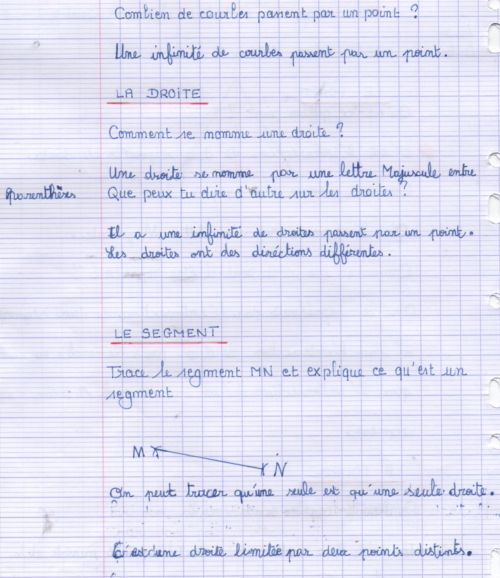 Combien de courbes passent par un point ?
Une infinité de courbes passent par un point.
LA DROITE
Comment se nomme une droite ?
Une droite se nomme par une lettre Majuscule entre
parenthèses
Que peux tu dire d'autre sur les droites ?
Il a une infinité de droites passent par un point.
Les droites ont des diréctions différentes.
LE SEGMENT
Trace le segment MN et explique ce qu'est un
segment
M
N
On peut tracer qu'une seule est qu'une seule droite.
C'est une droite limitée par deux points distints.